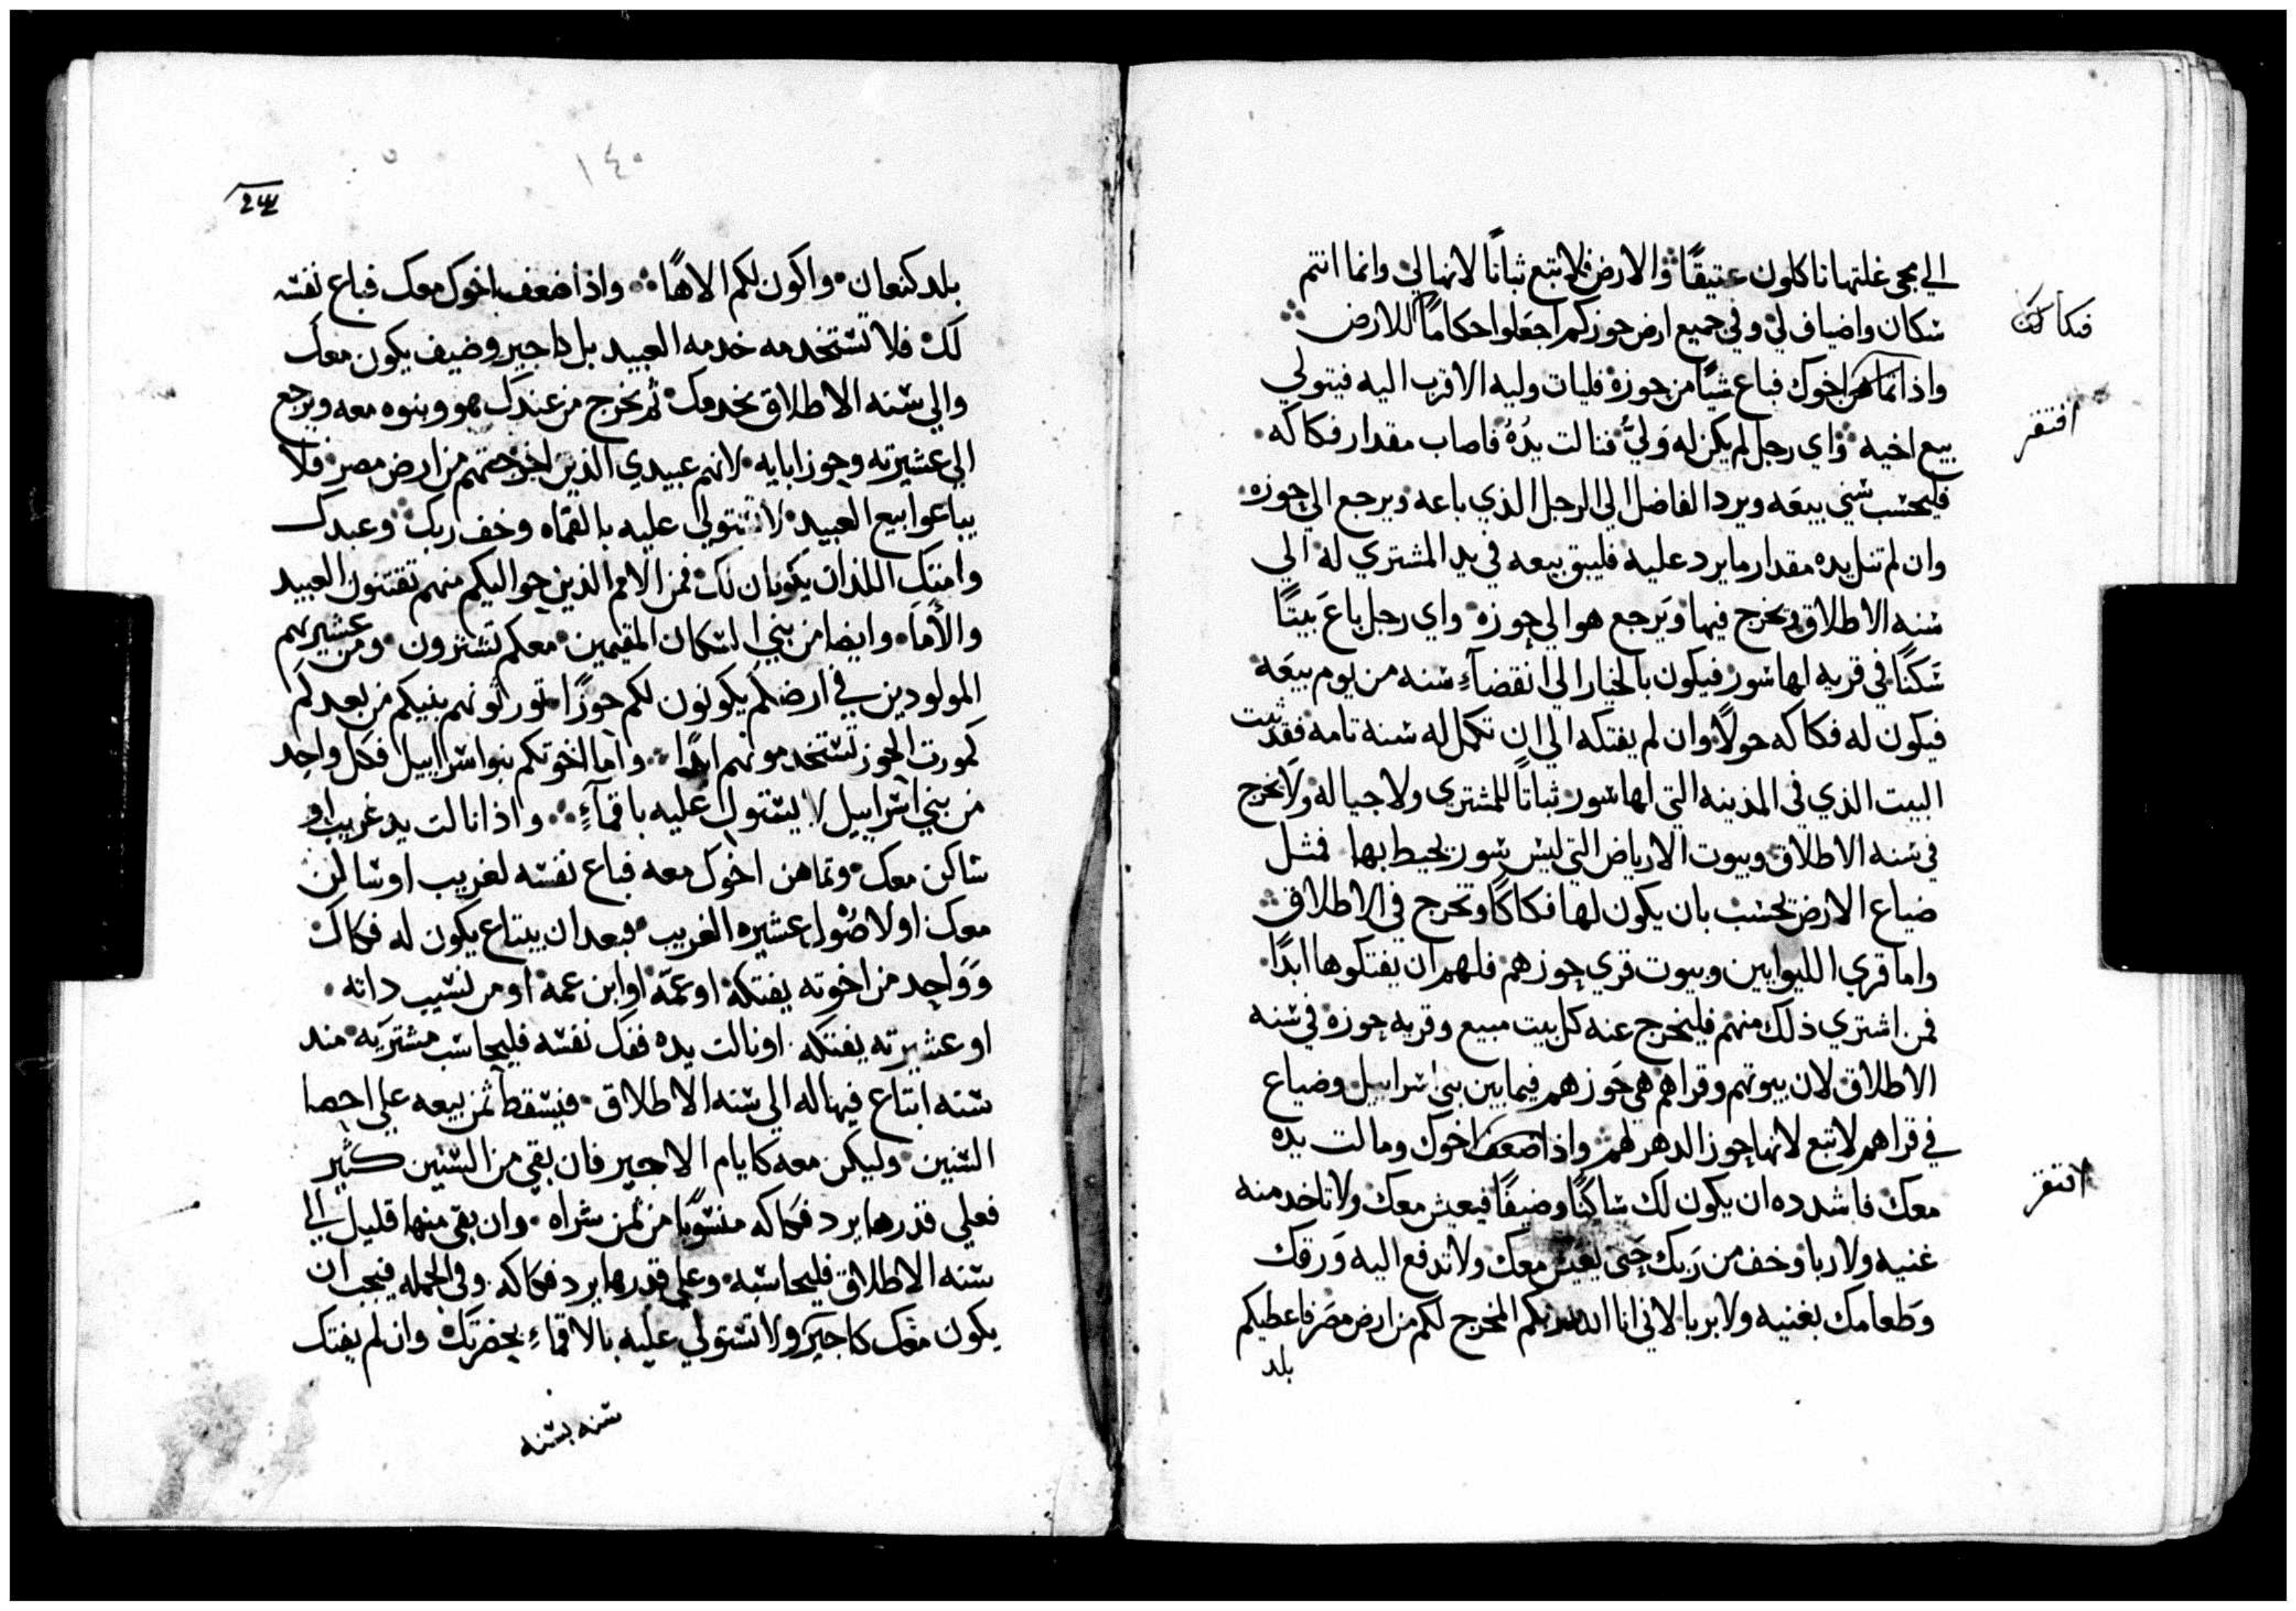 الي مجي غلتها تاكلون عتيقًا والارض فلا تبع ثباتًا لانها لي وانما انتم
سكان واضياف لي وفي جميع ارض حوزكم اجعلوا حكامًا للارض
فكاكات
واذا تماهن اخوك فباع شيًا من حوزه فليات وليه الاقرب اليه فيتولي
افتقر
بيع اخيه واي رجل لم يكن له وليٌ فنالت يدُهُ فاصاب مقدار فكاكه
فليحسب سني بيعه ويرد الفاضل الي الرجل الذي باعه ويرجع الي حوزه
وان لم تنل يده مقدار ما يرد عليه فليبق بيعه في يد المشتري له الي
سنه الاطلاق ويخرج فيها ويرجع هو الي حوزه واي رجل باعَ بيتًا
سَكنًا في قريه لها سور فيكون بالخيار الي انقضآءِ سنه من يوم بيعَه
فيكون له فكاكه حولًا وان لم يفتكه الي ان تكمل له سنه تامه فقد ثبت
البيت الذي في المدينه التي لها سور ثباتًا للمشتري ولاجياله ولا يخرج
في سنه الاطلاق وبيوت الارياض التي ليس سور يحيط بها فمثل
ضياع الارض يحسب بان يكون لها فكاكًا وتخرج في الاطلاق
واما قري الليوايين وبيوت قري حوزهم فلهم ان يفتكوها ابدًا
فمن اشتري ذلك منهم فليخرج عنه كل بيت مبيع وقريه حوزه في سنه
الاطلاق لان بيوتهم وقراهم هي حَوزهم فيما بين بني اسراييل وضياع
في قراهم لا تبع لانها حوز الدهر لهم واذا ضعف اخوك ومالت يده
افتقر
معك فاشدده ان يكون لك ساكنًا وضيفًا فيعيش معك ولا تاخد منه
غنيه ولا ربا وخف من رَبك حتي يعيش معك ولا تدفع اليه وَرقك
وَطعامك بغنيه ولا بربا لاني انا الله ربكم المخرج لكم من ارض مصر فاعطيكم
بلد
١٤٠
بلد كنعان واكون لكم الاهًا واذا ضعف اخوك معك فباع نفسه
لك فلا تستخدمه خدمه العبيد بل كاجير وضيف يكون معك
والي سنه الاطلاق يخدمك ثم يخرج من عندك هو وبنوه معه ويرجع
الي عشيرته وحوز ابايه لانهم عبيدي الذين اخرجتهم من ارض مصر فلا
يباعوا بيع العبيد لا تتولي عليه بالقماه وخف ربك وعبدك
وامتك اللذان يكونان لك فمن الامم الذين حواليكم منهم تقتنون العبيد
والأمَا وايضا من بني السكان المقيمين معكم تشترون ومن عشيرتهم
المولودين في ارضكم يكونون لكم حوزًا تورثونهم بنيكم من بعدكم
كمورت الحوز تستخدمونهم ابدًا واما اخوتكم بنو اسراييل فكل واحد
من بني اسراييل لا يستولي عليه باقمآءٍ واذا نالت يد غريب او
ساكن معك وتماهن اخوك معه فباع نفسه لغريب او ساكن
معك او لاصُول عشيره الغريب فبعد ان يبتاع يكون له فكاك
وَوَاحد من اخوته يفتكه او عمّه او ابن عمه او من نسيب داته
او عشيرته يفتكه او نالت يده ففك نفسه فليحاسب مشتريَه مند
سنه ابتاع فيها له الي سنه الاطلاق فيسقط ثمن بيعه علي احصا
السنين وليكن معه كايام الاجير فان بقي من السنين كثير
فعلي قدرها يرد فكاكه منسوبًا من ثمن شراه وان بقي منها قليل الي
سنه الاطلاق فليحاسبه وعلي قدرها يرد فكاكه وفي الجمله فيجب ان
يكون معك كاجير ولا تستولي عليه بالاقماءِ بحضرتك وان لم يفتك
سنه بسنه